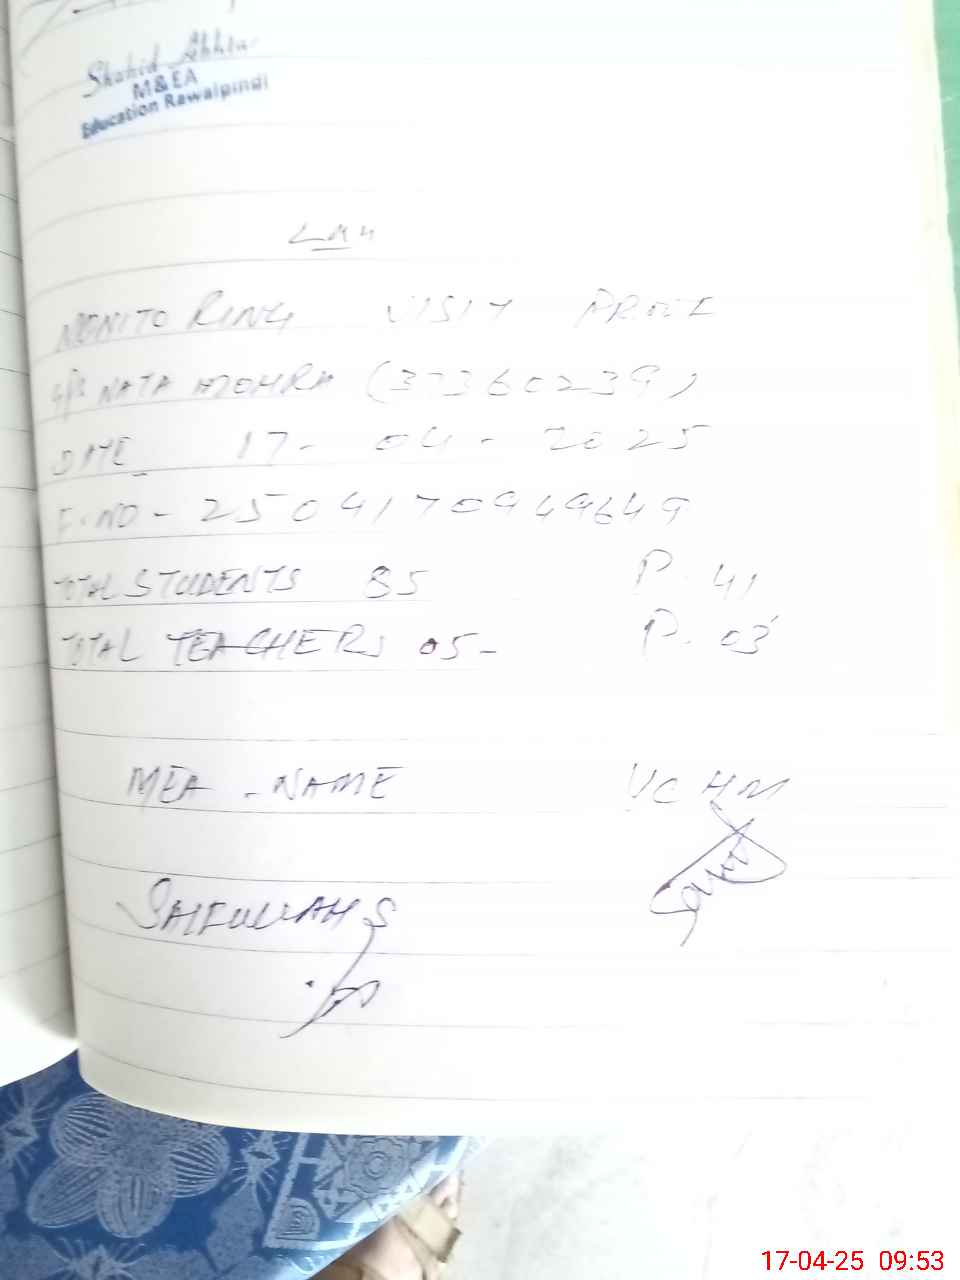 Shahid Akhtar
M&EA
Education Rawalpindi
MONITORING VISIT PROOF
GPS NATA MOHRA (37360239)
DATE 17-04-2025
F.NO - 2504170949649
TOTAL STUDENTS 85 P. 41
TOTAL TEACHERS 05- P. 03
MEA - NAME
SAIFULLAH S
17-04-25 09:53